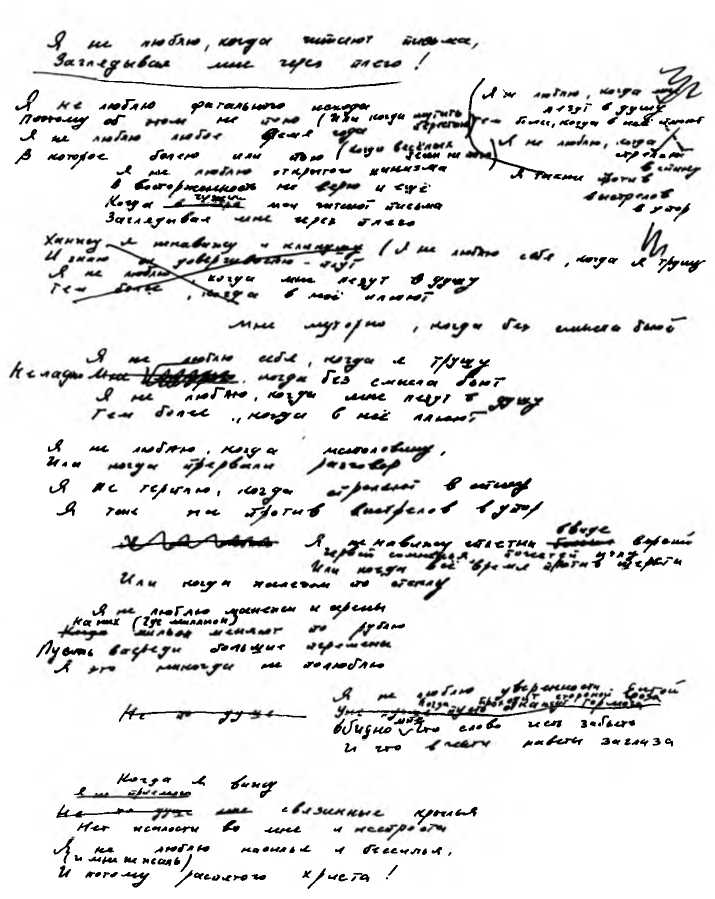 Я не люблю, когда читают письма,
Заглядывая мне через плечо!
Я не люблю фатального исхода
Поэтому об этом не пою (Или когда мутить
Я не люблю любое время года
В которое болею или пью (когда весёлых
Я не люблю открытого цинизма
В восторженность не верю и ещё
Когда чужие мои читают письма
Заглядывая мне через плечо
Я не люблю, когда мне
лезут в душу
Тем более, когда в неё плюют
Я не люблю, когда
стреляют
в спину
Я также против
выстрелов
в упор
Ханжу я ненавижу и кляузу (Я не люблю себя, когда я трушу
И знаю доверчивостью
Я не люблю, когда мне лезут в душу
Тем более, когда в неё плюют
Мне муторно, когда без смысла бьют
Я не люблю себя, когда я трушу
Не лажу когда без смысла бьют
Я не люблю, когда мне лезут в душу
Тем более, когда в неё плюют
Я не люблю, когда наполовину,
Или когда прервали разговор
Я не терплю, когда стреляют в спину
Я тоже против выстрелов в упор
Я ненавижу сплетни в виде версий
Червей сомненья, почестей иглу
Или когда всё время против шерсти
Или когда железом по стеклу
Я не люблю манежи и арены
На них (Где миллион)
мильон меняют по рублю
Пусть впереди большие перемены
Я это никогда не полюблю
Не по душе
Я не люблю уверенности сытой
Когда проходит стороной гроза
Уж лучше пусть откажут тормоза
Обидно что слово честь забыто
И что в чести наветы за глаза
Когда я вижу
Я не приемлю
Не по душе мне связанные крылья
Нет жалости во мне и неспроста
Я не люблю насилья и бессилья,
(и мне не жаль)
И потому распятого христа!